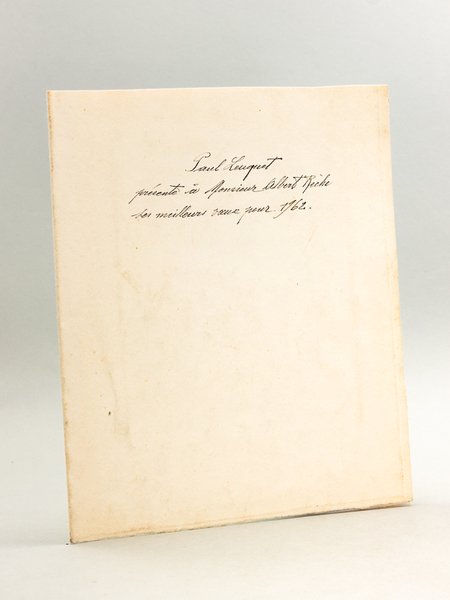 Paul Leuquet
présente à Monsieur Albert Rèche
ses meilleurs vœux pour 1962.